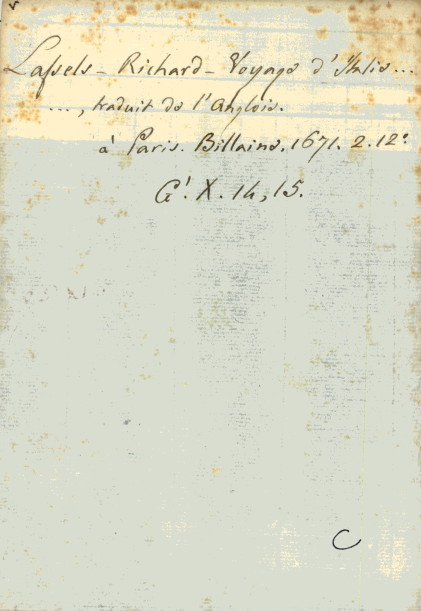 Lassels - Richard - Voyage d'Italie...
..., traduit de l'Anglois.
à Paris. Billaine. 1671. 2. 12°
G'. X. 14, 15.
C